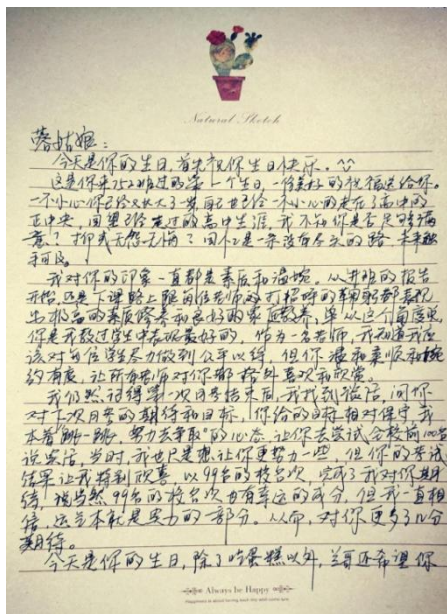 Natural Sketch
蓉姑娘：
今天是你的生日，首先祝你生日快乐。^^
这是你来252班过的第一个生日，一份美好的祝福送给你。
一不小心你已经又长大了一岁，而也已经一不小心的走在了高中的
正中央，回望已经走过的高中生涯，我不知你是否足够满
意？抑或无怨无悔？因为这是一条没有尽头的路，未来遥
不可及。
我对你的印象一直都是素质和温婉。从进班的报告
开始，还是下课路上跟每位老师的打招呼的细节都表现
出极高的素质修养和良好的家庭教养，单从这个角度说，
你是我教过学生中表现最好的，作为一名老师，我知道我应
该对每位学生尽力做到公平以待，但你温和柔顺和
约有度，让所有老师对你都格外喜欢和欣赏。
我仍然记得第一次月考结束后，我找到你谈话，问你
对下次月考的期待和目标，你给的目标相对保守，我
本着"跳一跳，努力去争取"的心态，让你去尝试全校前100名
说实话，当时，我也只是想让你更努力一些，但你的考试
结果让我特别欣喜，以99名的校名次，完成了我对你的期
待，说当然99名的校名次也有幸运的成分，但我一直相
信，运气本就是实力的一部分。从而，对你更多了几分
期待。
今天是你的生日，除了吃蛋糕以外，还希望你
Always be Happy